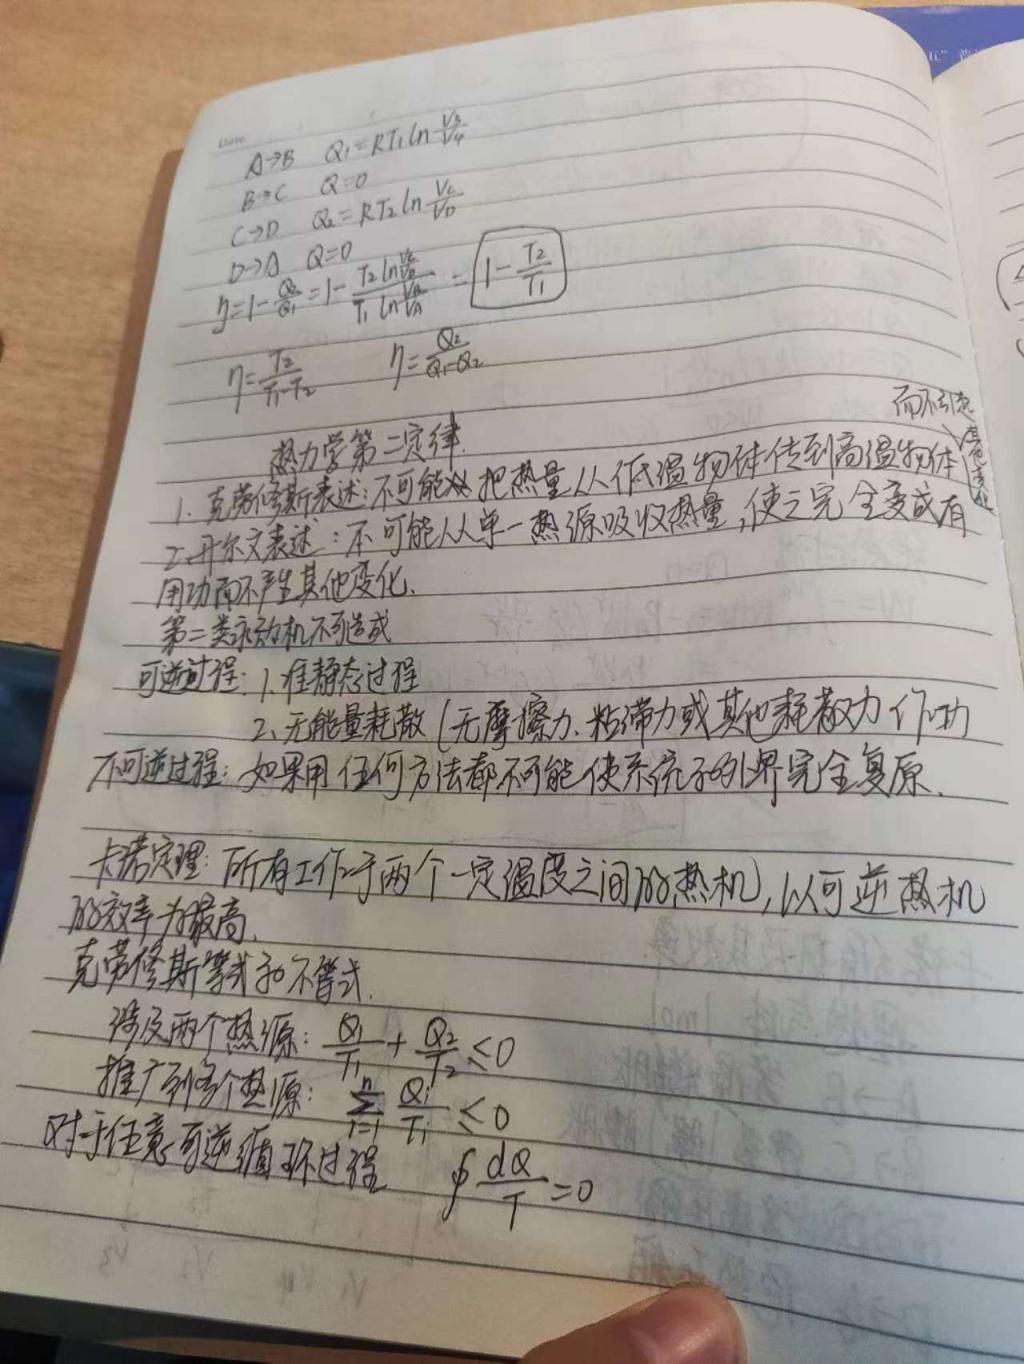 Date
A→B Q₁=RT₁ln V₃/V₄
B→C Q=0
C→D Q₂=RT₂ln Vc/VD
D→A Q=0
η=1-Q₂/Q₁=1-T₂ln/T₁ln =1-T₂/T₁
η=T₂/(T₁-T₂) η=Q₂/(Q₁-Q₂)
热力学第二定律.
而不引起
1. 克劳修斯表述:不可能 把热量从低温物体传到高温物体
2.开尔文表述:不可能从单一热源吸收热量,使之完全变成有
用功而不产生其他变化.
第二类永动机不可造成
可逆过程: 1.准静态过程
2.无能量耗散(无摩擦力、粘滞力或其他耗散力作功
不可逆过程:如果用任何方法都不可能使系统和外界完全复原.
卡诺定理:所有工作于两个一定温度之间的热机,以可逆热机
的效率为最高.
克劳修斯等式和不等式.
涉及两个热源: Q₁/T₁+Q₂/T₂≤0
推广到多个热源: ∑ⁿᵢ₌₁ Qᵢ/Tᵢ≤0
对于任意可逆循环过程 ∮dQ/T=0